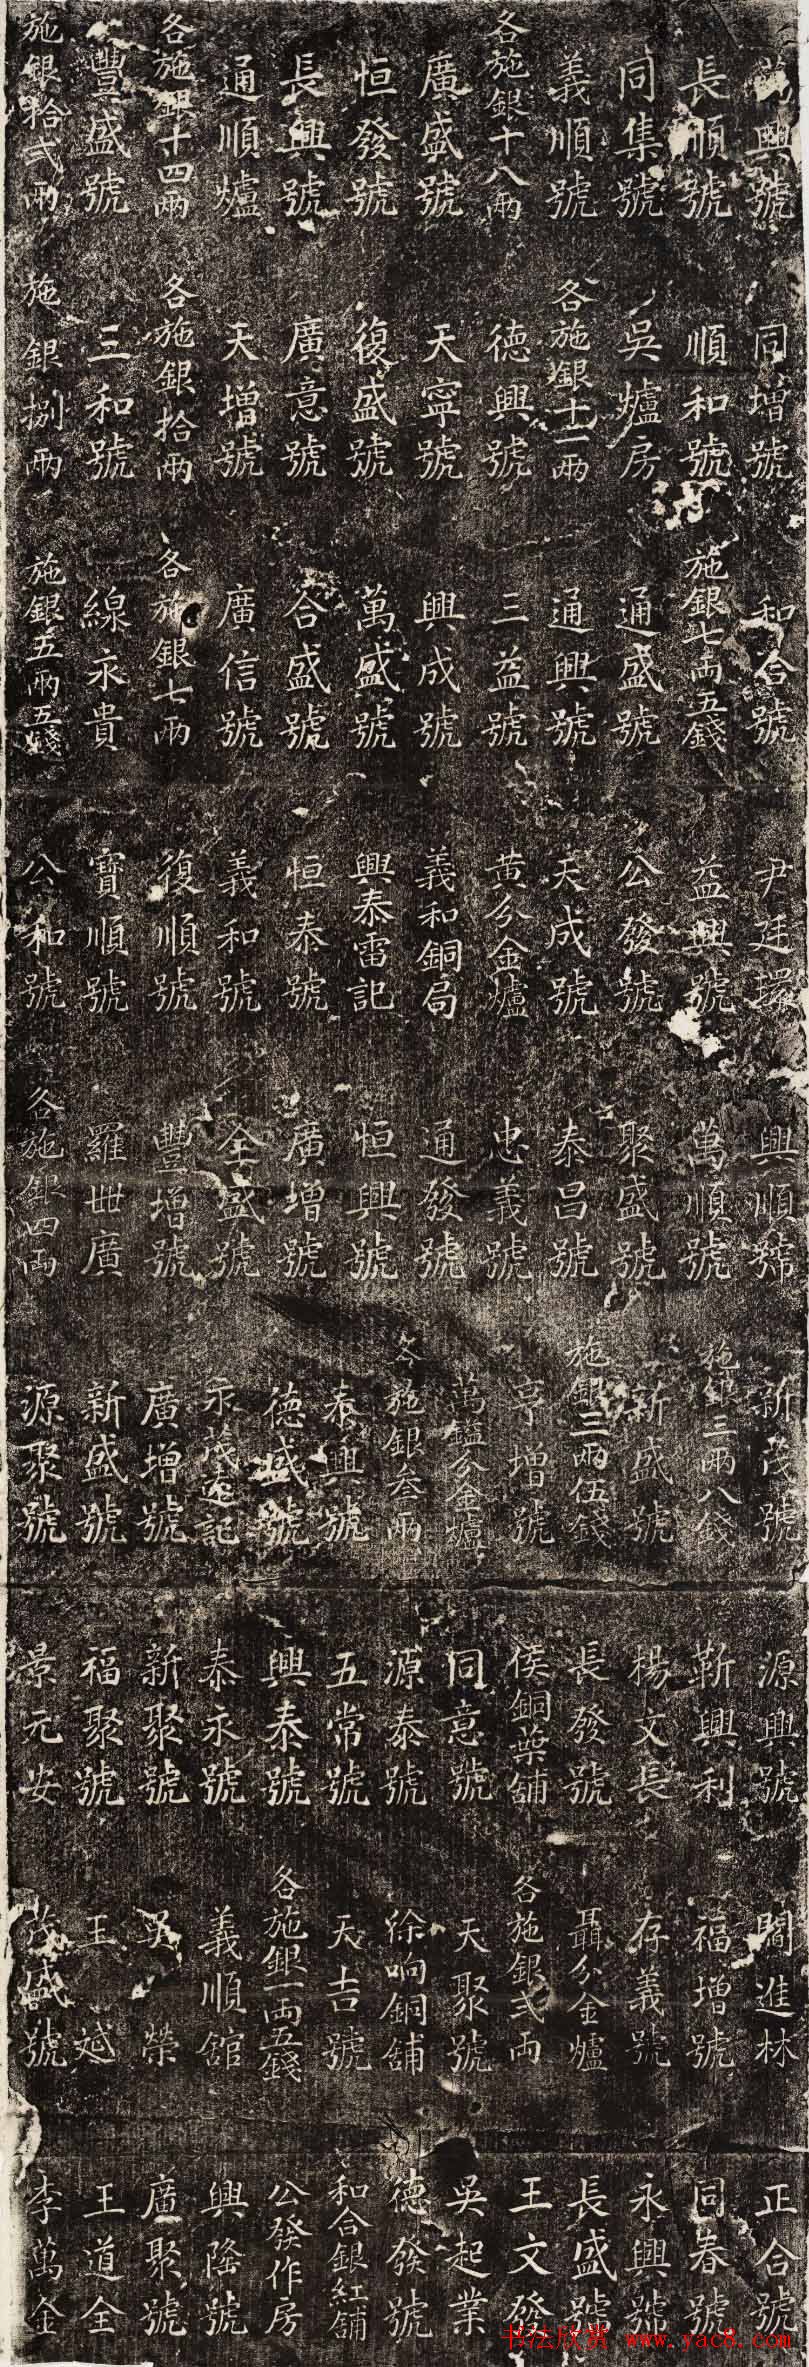 萬興號
長順號
同集號
義順號
各施銀十八兩
廣盛號
恒發號
長興號
通順爐
各施銀十四兩
豐盛號
施銀拾弍兩
同增號
順和號
吳爐房
各施銀十一兩
德興號
天寧號
復盛號
廣意號
天增號
各施銀拾兩
三和號
施銀捌兩
和合號
施銀七兩五錢
通盛號
通興號
三益號
興成號
萬盛號
合盛號
廣信號
各施銀七兩
線永貴
施銀五兩五錢
尹廷環
益興號
公發號
天成號
黄分金爐
義和銅局
興泰雷記
恒泰號
義和號
復順號
寳順號
公和號
興順號
萬順號
聚盛號
泰昌號
忠義號
通發號
恒興號
廣增號
全盛號
豐增號
羅世廣
各施銀四兩
新茂號
施銀三兩八錢
新盛號
施銀三兩伍錢
亨增號
萬鎰分金爐
各施銀叁兩
泰興號
德盛號
永茂遠記
廣增號
新盛號
源聚號
源興號
靳興利
楊文長
長發號
侯銅葉舖
同意號
源泰號
五常號
興泰號
泰永號
新聚號
福聚號
景元安
閻進林
福增號
存義號
聶分金爐
各施銀弍兩
天聚號
徐响銅舖
天吉號
各施銀一兩五錢
義順舘
吳榮
王斌
茂盛號
正合號
同春號
永興號
長盛號
王文發
吳起業
德發號
和合銀紅舖
公發作房
興隆號
廣聚號
王道全
李萬全
书法欣赏 www.yac8.com